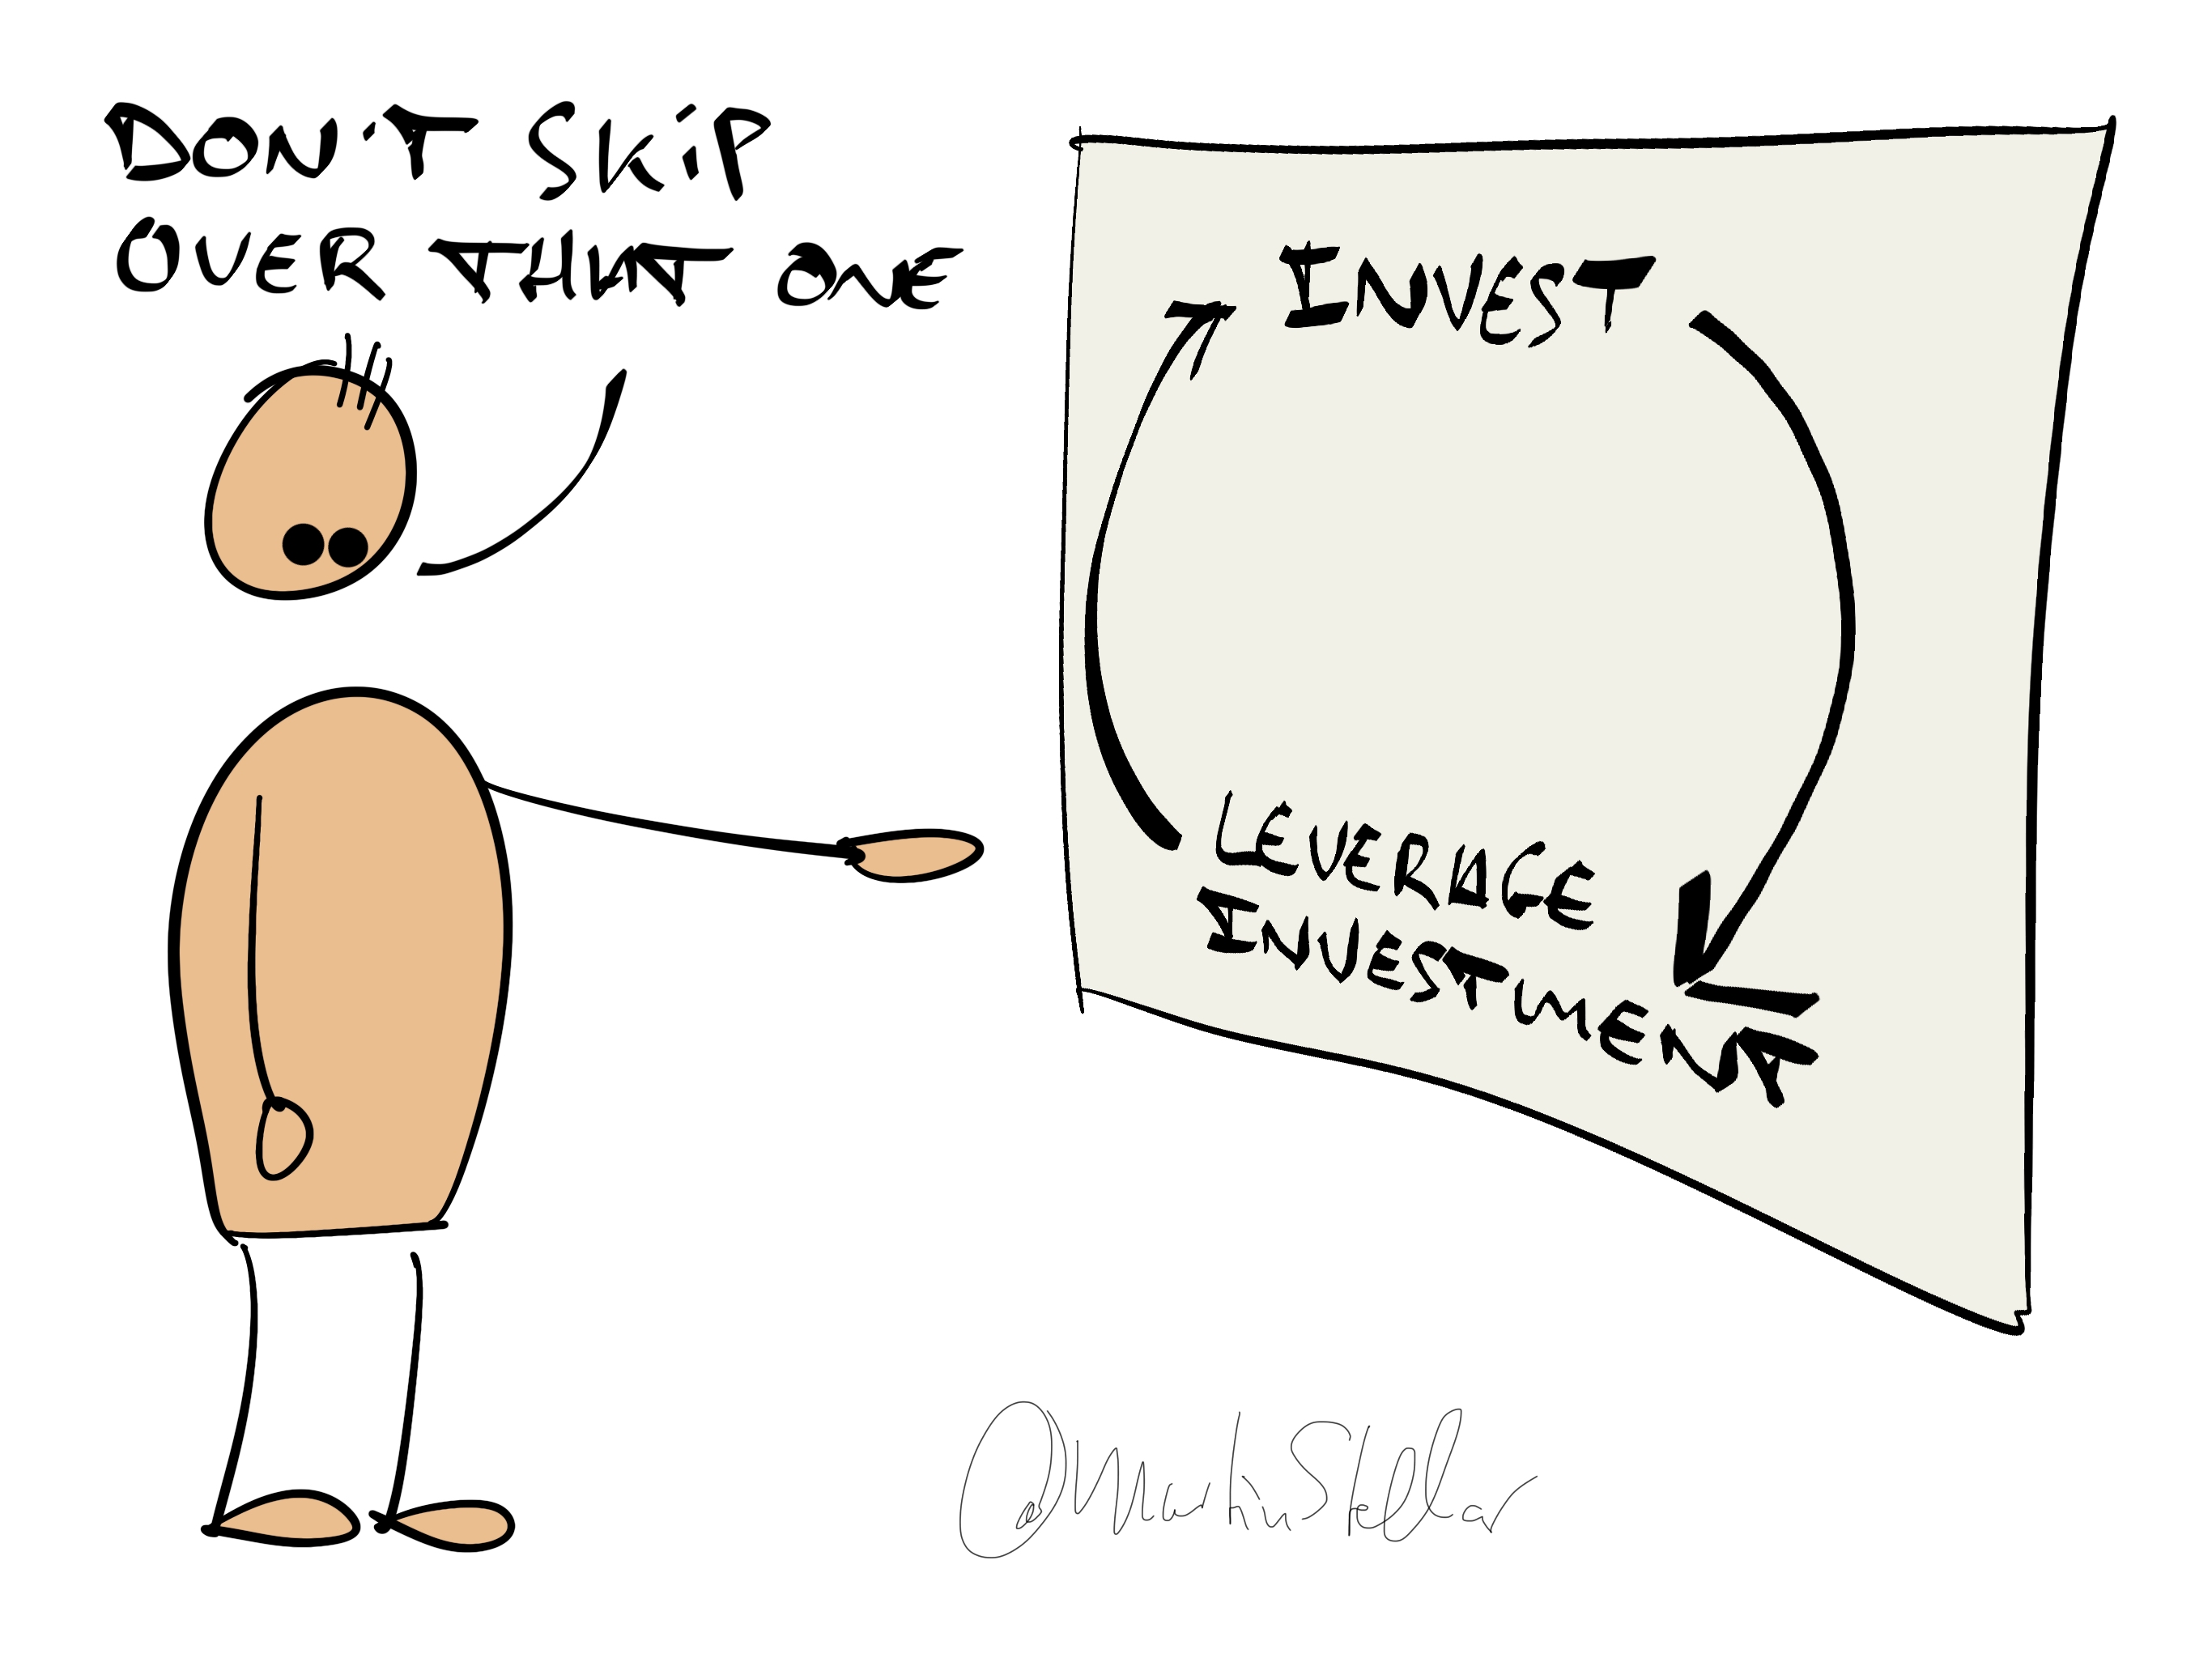 DON'T SKiP
OVER THAT ONE
INVEST
LEVERAGE
INVESTMENT
@MartinStellar